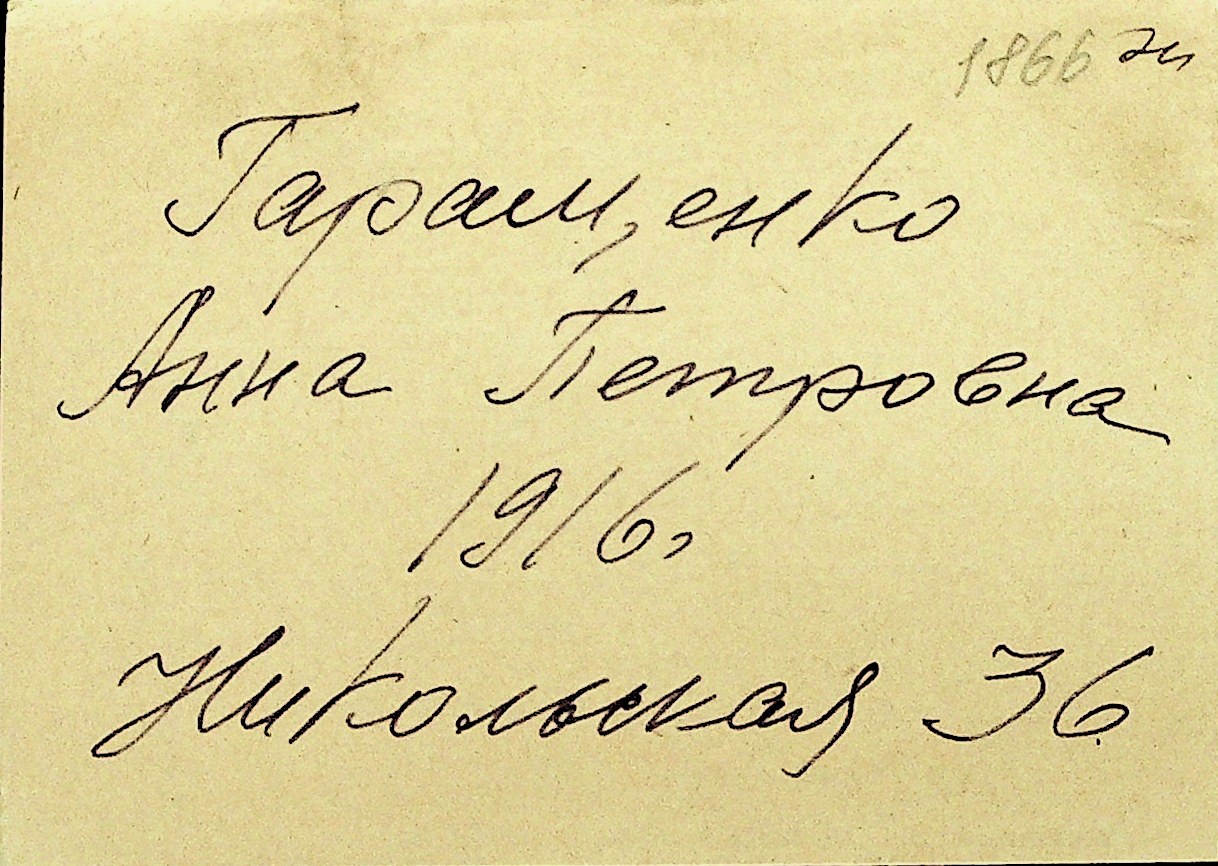 1866 жи
Гаращенко
Анна Петровна
1916г
Никольская 36